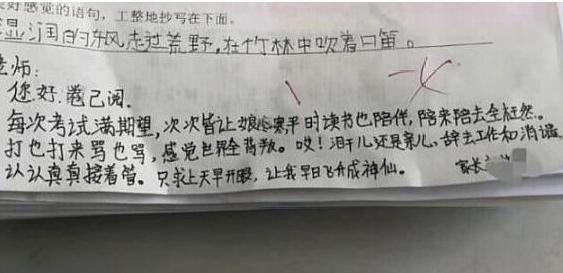 好感觉的语句，工整地抄写在下面。
湿润的东风走过荒野，在竹林中吹着口笛。
老师：
您好.卷已阅.
每次考试满期望，次次皆让娘心寒平时读书也陪伴，陪来陪去全枉然。
打也打来骂也骂，感觉世界全背叛。哎！泪干儿还是亲儿，辞去工作和消遣
认认真真接着管。只求上天早开眼，让我早日飞升成神仙。
家长